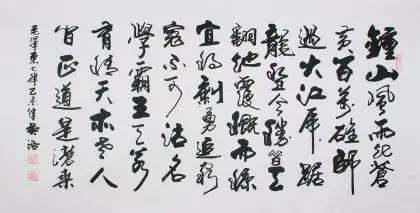 鍾山風雨起蒼
黃百萬雄師
過大江虎踞
龍盤今勝昔天
翻地覆慨而慷
宜將剩勇追窮
寇不可沽名
學霸王天若
有情天亦老人
間正道是滄桑
毛澤東七律乙未年